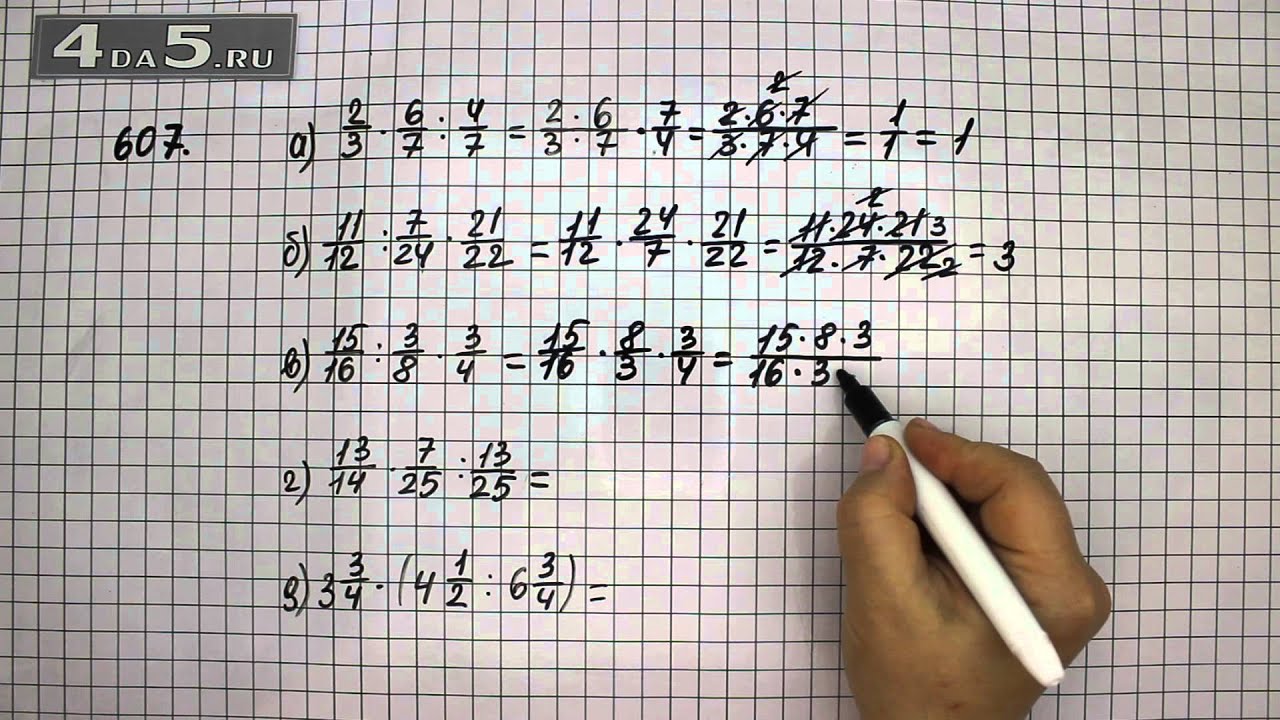 4DA5.RU
607. а) 2/3 · 6/7 : 4/7 = 2 · 6 / 3 · 7 · 7/4 = 2 · 6 · 7 / 3 · 7 · 4 = 1/1 = 1
2
б) 11/12 : 7/24 · 21/22 = 11/12 · 24/7 · 21/22 = 11 · 24 · 21 3 / 12 · 7 · 22 2 = 3
2
в) 15/16 : 3/8 · 3/4 = 15/16 · 8/3 · 3/4 = 15 · 8 · 3 / 16 · 3
г) 13/14 · 7/25 : 13/25 =
д) 3 3/4 · (4 1/2 : 6 3/4) =